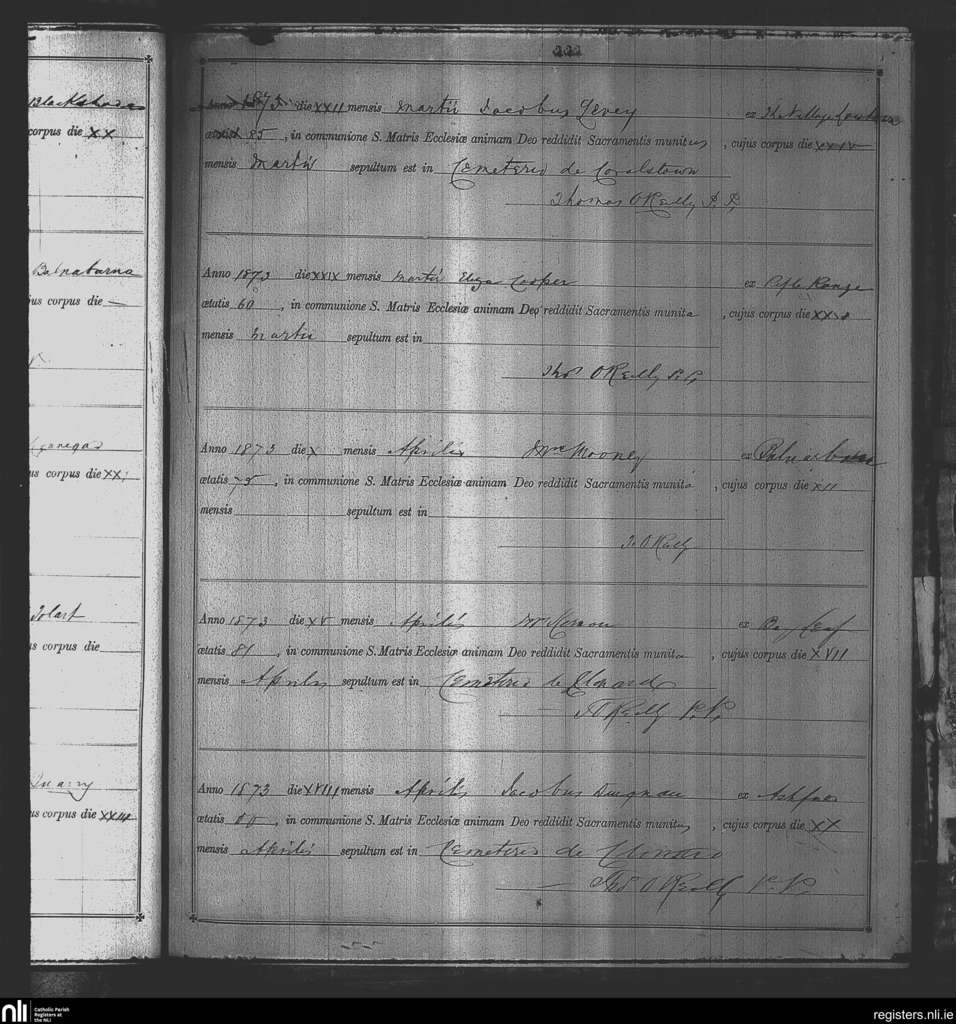 Blackshade
corpus die XX
Balnaburna
us corpus die —
us corpus die XX
us corpus die
Quarry
us corpus die XXIII
222
Anno 1873 die XXII mensis Martii Jacobus Gevey ex The Village
ætatis 85, in communione S. Matris Ecclesiæ animam Deo reddidit Sacramentis munitus, cujus corpus die XXIV
mensis Martii sepultum est in Cemeterio de Coralstown
Thomas O'Reilly P.P.
Anno 1873 die XXIX mensis Martii Eliza Cooper ex Rifle Range
ætatis 60, in communione S. Matris Ecclesiæ animam Deo reddidit Sacramentis munita, cujus corpus die
mensis Martii sepultum est in
Thos O'Reilly P.P.
Anno 1873 die X mensis Aprilis Mooney ex
ætatis 75, in communione S. Matris Ecclesiæ animam Deo reddidit Sacramentis munita, cujus corpus die XII
mensis sepultum est in
T. O'Reilly
Anno 1873 die XV mensis Aprilis ex
ætatis 81, in communione S. Matris Ecclesiæ animam Deo reddidit Sacramentis munita, cujus corpus die XVII
mensis Aprilis sepultum est in Cemeterio de Clonard
T O'Reilly P.P.
Anno 1873 die XVIII mensis Aprilis Jacobus Duignan ex
ætatis, in communione S. Matris Ecclesiæ animam Deo reddidit Sacramentis munitus, cujus corpus die XX
mensis Aprilis sepultum est in Cemeterio de Clonard
Thos O'Reilly P.P.
nli Catholic Parish
Registers at
the NLI
registers.nli.ie